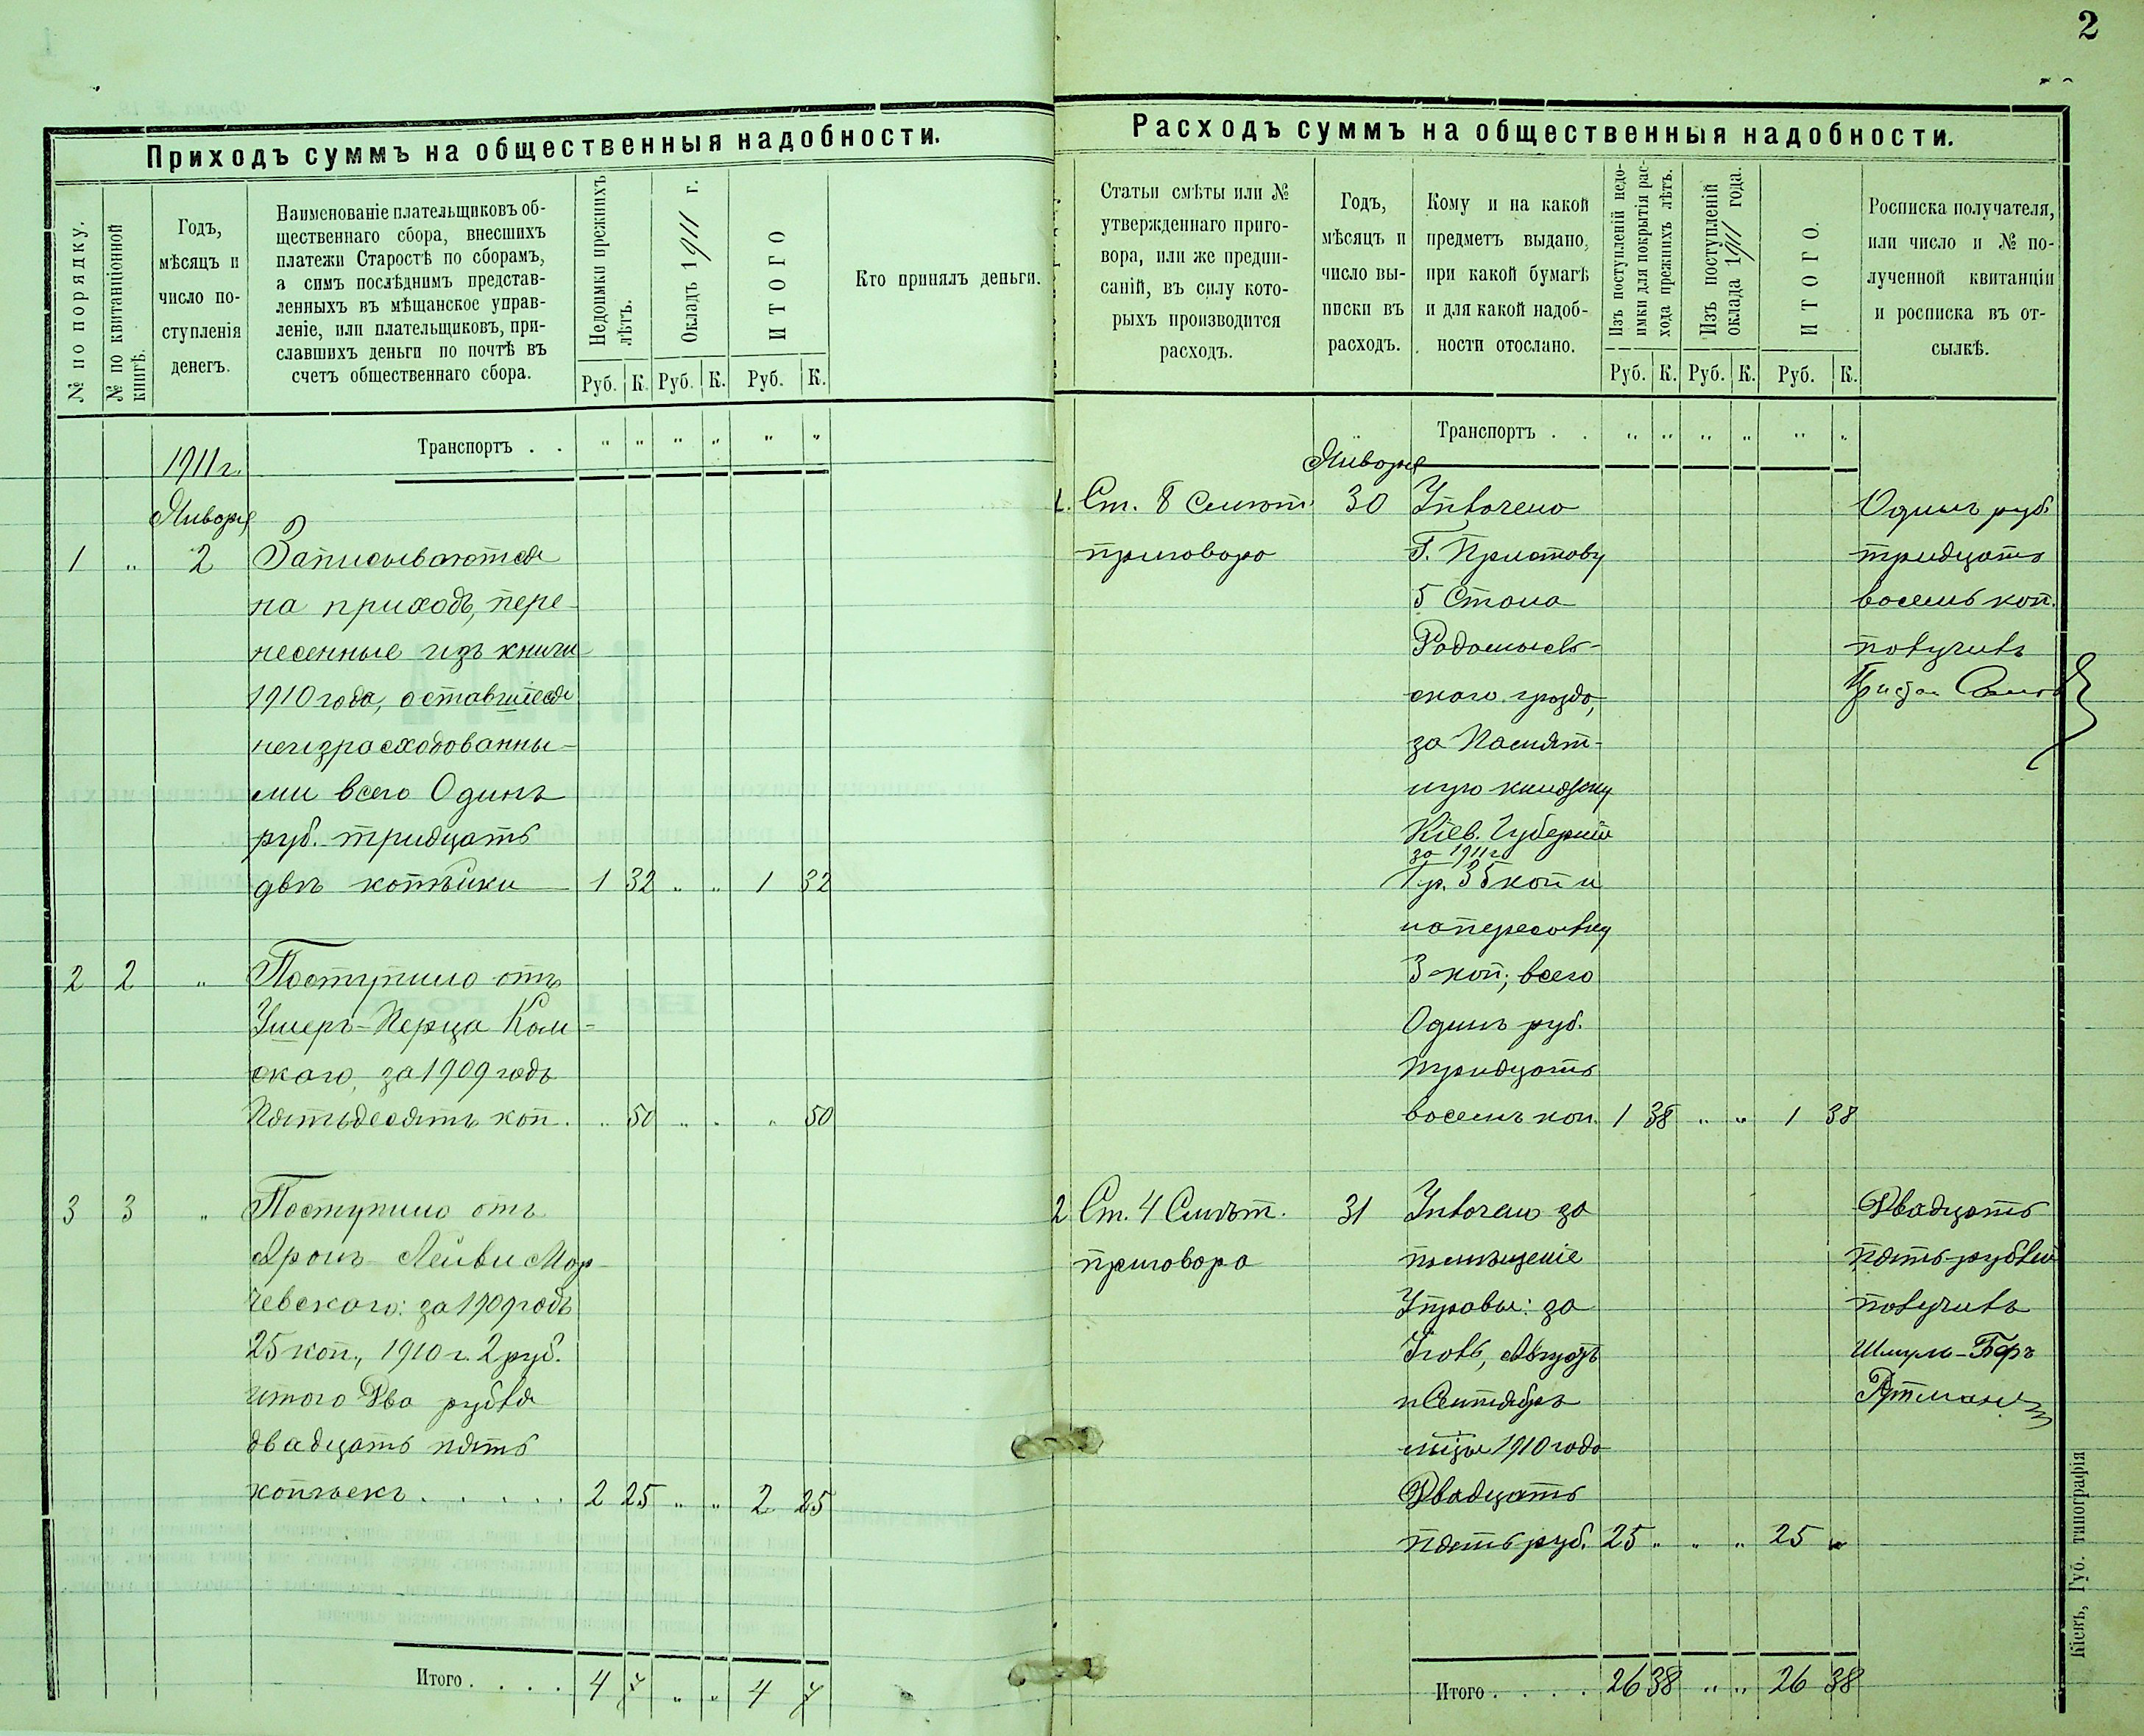 2
Приходъ суммъ на общественныя надобности.
№ по порядку.
№ по квитанціонной
книгѣ.
Годъ,
мѣсяцъ и
число по-
ступленія
денегъ.
Наименованіе плательщиковъ об-
щественнаго сбора, внесшихъ
платежи Старостѣ по сборамъ,
а симъ послѣднимъ представ-
ленныхъ въ мѣщанское управ-
леніе, или плательщиковъ, при-
славшихъ деньги по почтѣ въ
счетъ общественнаго сбора.
Недоимки прежнихъ
лѣтъ.
Окладъ 1911 г.
ИТОГО
Кто принялъ деньги.
Руб. К. Руб. К. Руб. К.
Транспортъ . . " " " " " "
1911 г.
Января
1 " 2 Записываются
на приходъ, пере-
несенные изъ книги
1910 года, оставшіеся
неизрасходованны-
ми всего Одинъ
руб. тридцать
двѣ копѣйки 1 32 " " 1 32
2 2 " Поступило отъ
Ушеръ-Перца Кам-
скаго, за 1909 годъ
Пятьдесятъ коп. " 50 " " " 50
3 3 " Поступило отъ
Аронъ-Лейви Мар-
чевскаго: за 1909 годъ
25 коп., 1910 г. 2 руб.
итого Два рубля
двадцать пять
копѣекъ . . . . . 2 25 " " 2 25
Итого . . . . 4 7 " " 4 7
Расходъ суммъ на общественныя надобности.
Статьи смѣты или №
утвержденнаго приго-
вора, или же предпи-
саній, въ силу кото-
рыхъ производится
расходъ.
Годъ,
мѣсяцъ и
число вы-
писки въ
расходъ.
Кому и на какой
предметъ выдано,
при какой бумагѣ
и для какой надоб-
ности отослано.
Изъ поступленій недо-
имки для покрытія рас-
хода прежнихъ лѣтъ.
Изъ поступленій
оклада 1911 года.
ИТОГО.
Росписка получателя,
или число и № по-
лученной квитанціи
и росписка въ от-
сылкѣ.
Руб. К. Руб. К. Руб. К.
Транспортъ . . " " " " " "
Января
1. Ст. 8 Смѣт. 30 Уплачено
приговора Г. Приставу
5 Стана
Радомысль-
скаго уѣзда,
за Памят-
ную книжку
Кіев. Губерніи
за 1911 г.
1 р. 35 коп и
на пересылку
3 коп; всего
Одинъ руб.
тридцать
восемь коп. 1 38 " " 1 38
Одинъ руб.
тридцать
восемь коп.
получилъ
2 Ст. 4 Смѣт. 31 Уплачено за
приговора помѣщеніе
Управы: за
Іюль, Августъ
и Сентябрь
мѣцы 1910 года
Двадцать
пять руб. 25 " " " 25 "
Двадцать
пять рублей
получилъ
Шмуль-Беръ
Итого . . . . 26 38 " " 26 38
Кіевъ, Губ. типографія